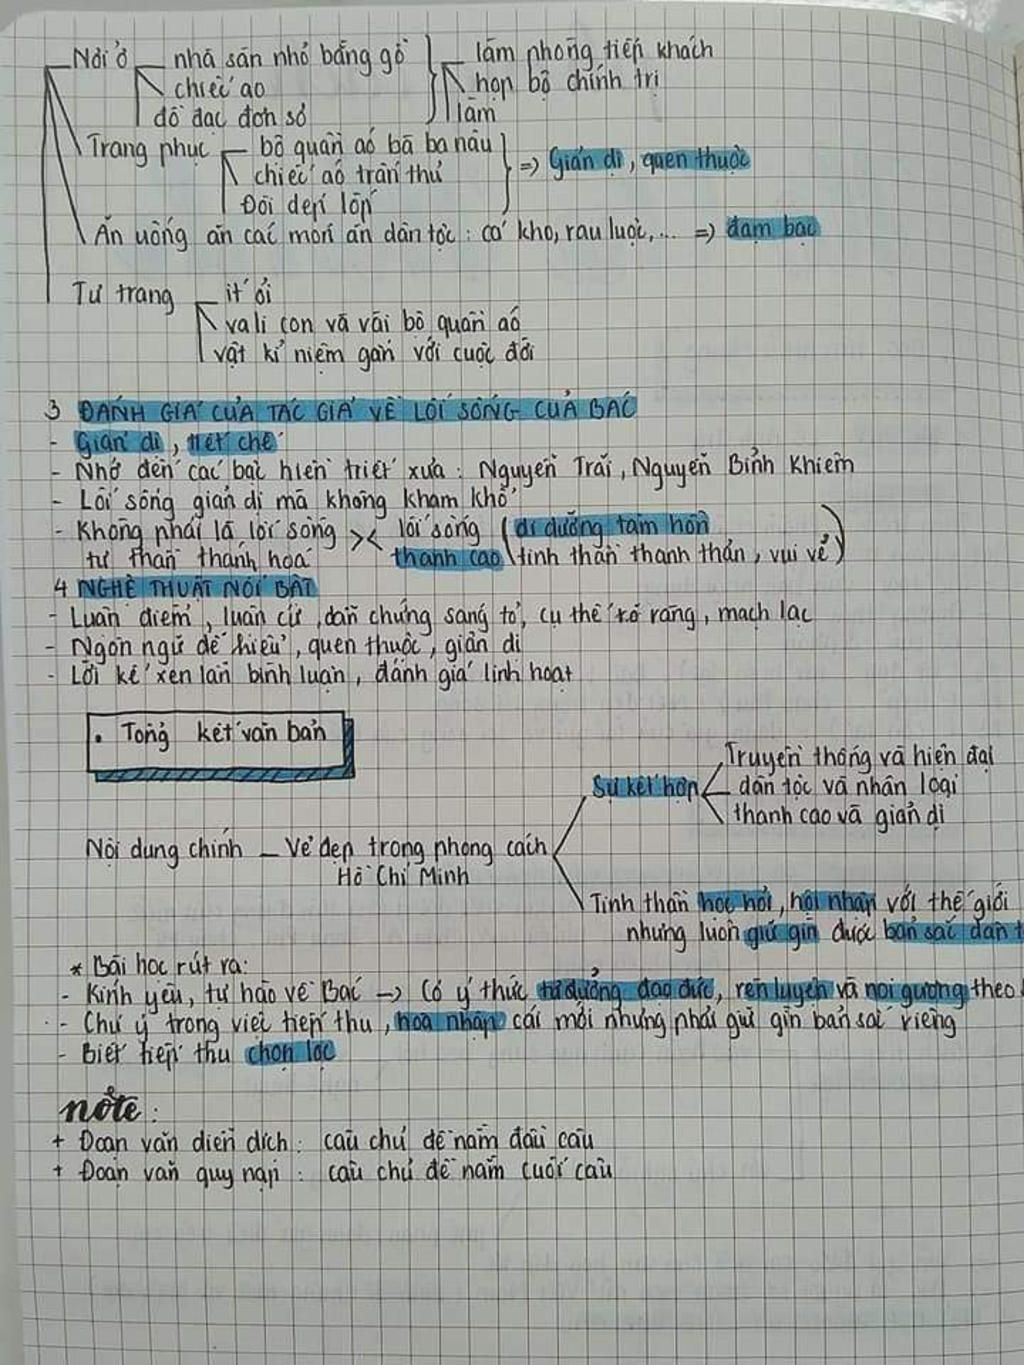 Nơi ở nhà sàn nhỏ bằng gỗ làm phòng tiếp khách
chiếc ao họp bộ chính trị
đồ đạc đơn sơ làm
Trang phục bộ quần áo bà ba nâu
chiếc áo trấn thủ => Giản dị, quen thuộc
Đôi dép lốp
Ăn uống ăn các món ăn dân tộc : cá kho, rau luộc,... => đạm bạc
Tư trang ít ỏi
vali con và vài bộ quần áo
vật kỉ niệm gắn với cuộc đời
3 ĐÁNH GIÁ CỦA TÁC GIẢ VỀ LỐI SỐNG CỦA BÁC
- Giản dị, tiết chế
- Nhớ đến các bậc hiền triết xưa : Nguyễn Trãi, Nguyễn Bỉnh Khiêm
- Lối sống giản dị mà không kham khổ
- Không phải là lối sống >< lối sống (di dưỡng tâm hồn
tự thần thánh hoá thanh cao tinh thần thanh thản, vui vẻ)
4 NGHỆ THUẬT NỔI BẬT
- Luận điểm, luận cứ, dẫn chứng sáng tỏ, cụ thể rõ ràng, mạch lạc
- Ngôn ngữ dễ hiểu, quen thuộc, giản dị
- Lời kể xen lẫn bình luận, đánh giá linh hoạt
• Tổng kết văn bản
Truyền thống và hiện đại
Sự kết hợp dân tộc và nhân loại
thanh cao và giản dị
Nội dung chính – Vẻ đẹp trong phong cách
Hồ Chí Minh
Tinh thần học hỏi, hội nhập với thế giới
nhưng luôn giữ gìn được bản sắc dân t
* Bài học rút ra:
- Kính yêu, tự hào về Bác -> Có ý thức tu dưỡng đạo đức, rèn luyện và noi gương theo
- Chú ý trong việc tiếp thu, hoà nhập cái mới nhưng phải giữ gìn bản sắc riêng
- Biết tiếp thu chọn lọc
note :
+ Đoạn văn diễn dịch : câu chủ đề nằm đầu câu
+ Đoạn văn quy nạp : câu chủ đề nằm cuối câu